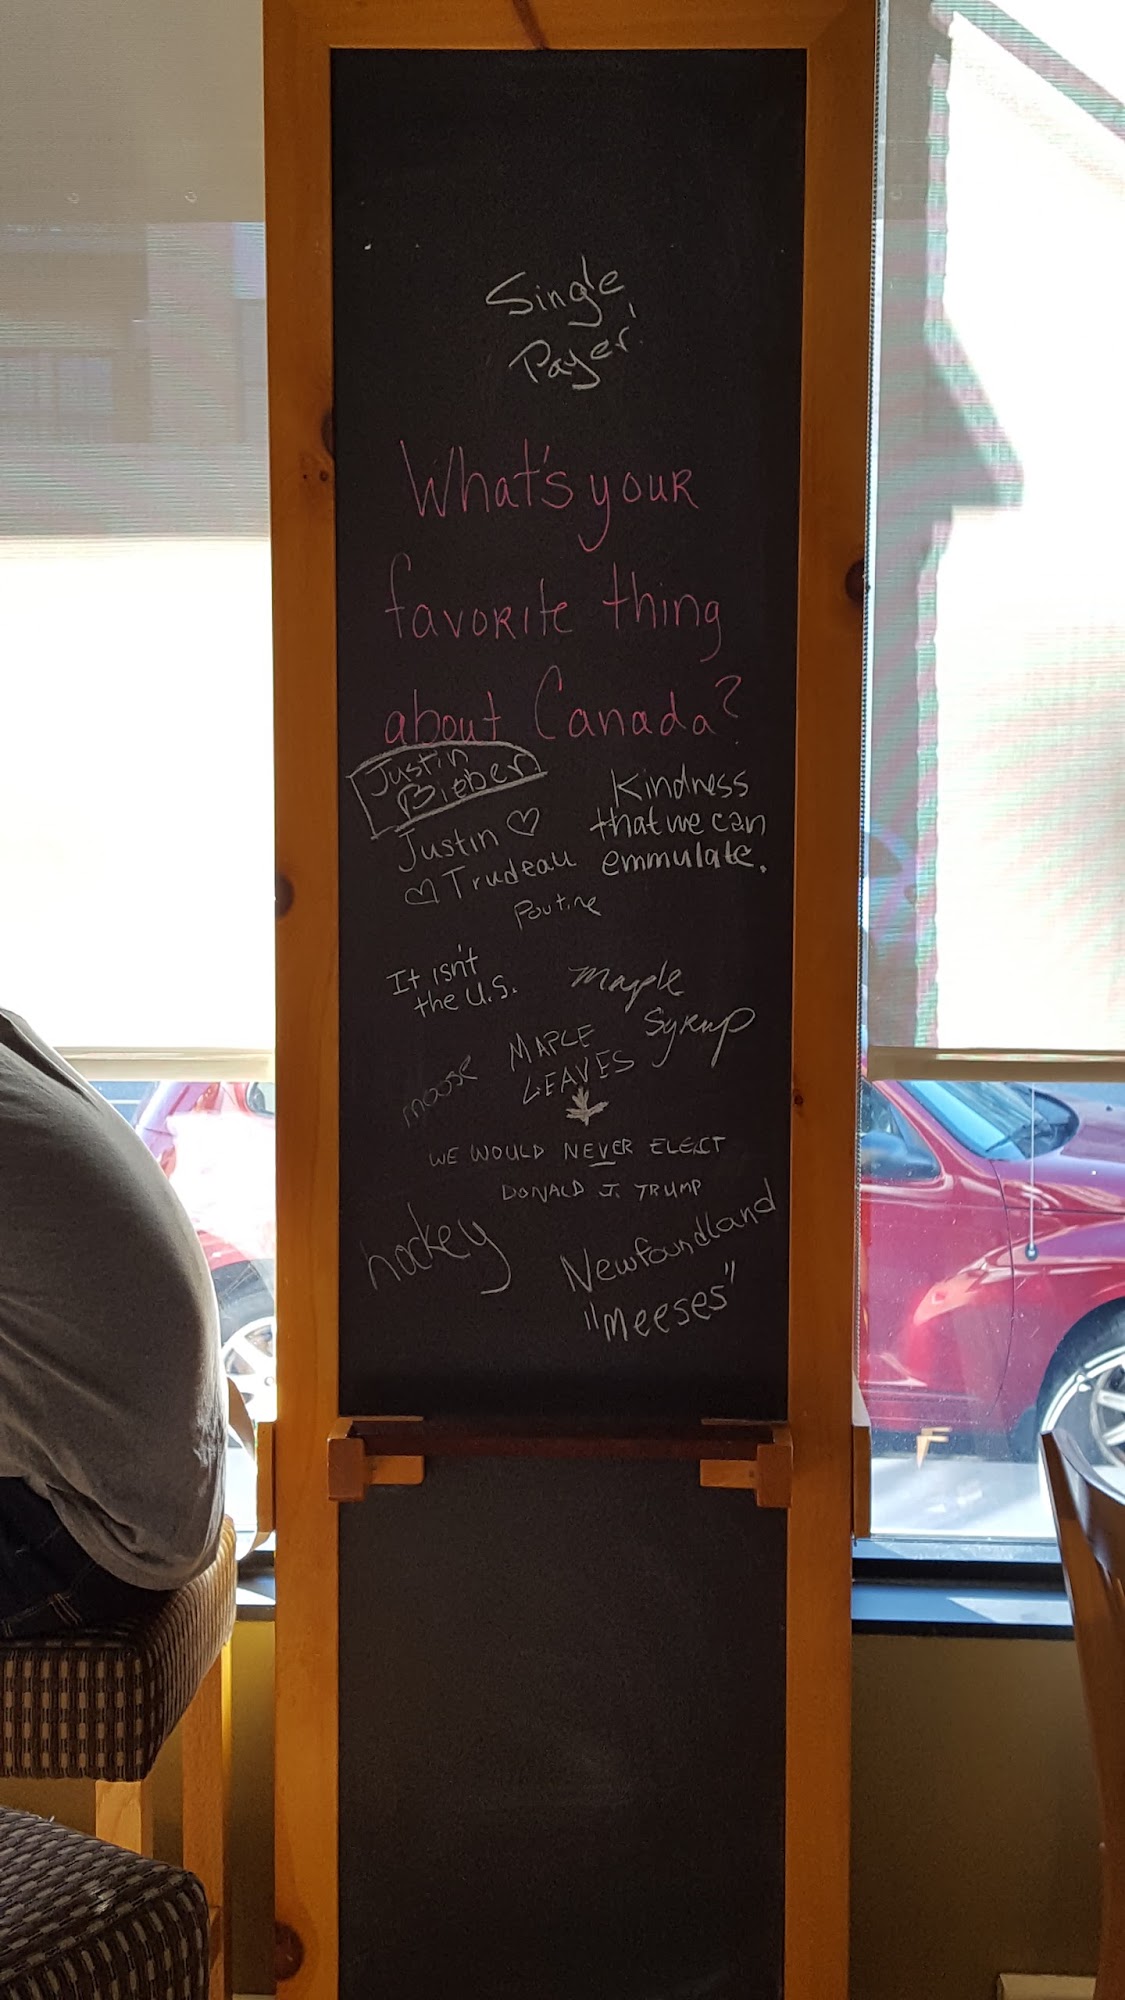 Single
Payer!
What's your
favorite thing
about Canada?
Justin
Bieber
Justin ♡
♡ Trudeau
Kindness
that we can
emmulate.
Poutine
It isn't
the U.S.
Maple
Syrup
moose
MAPLE
LEAVES
WE WOULD NEVER ELECT
DONALD J. TRUMP
hockey
Newfoundland
"meeses"